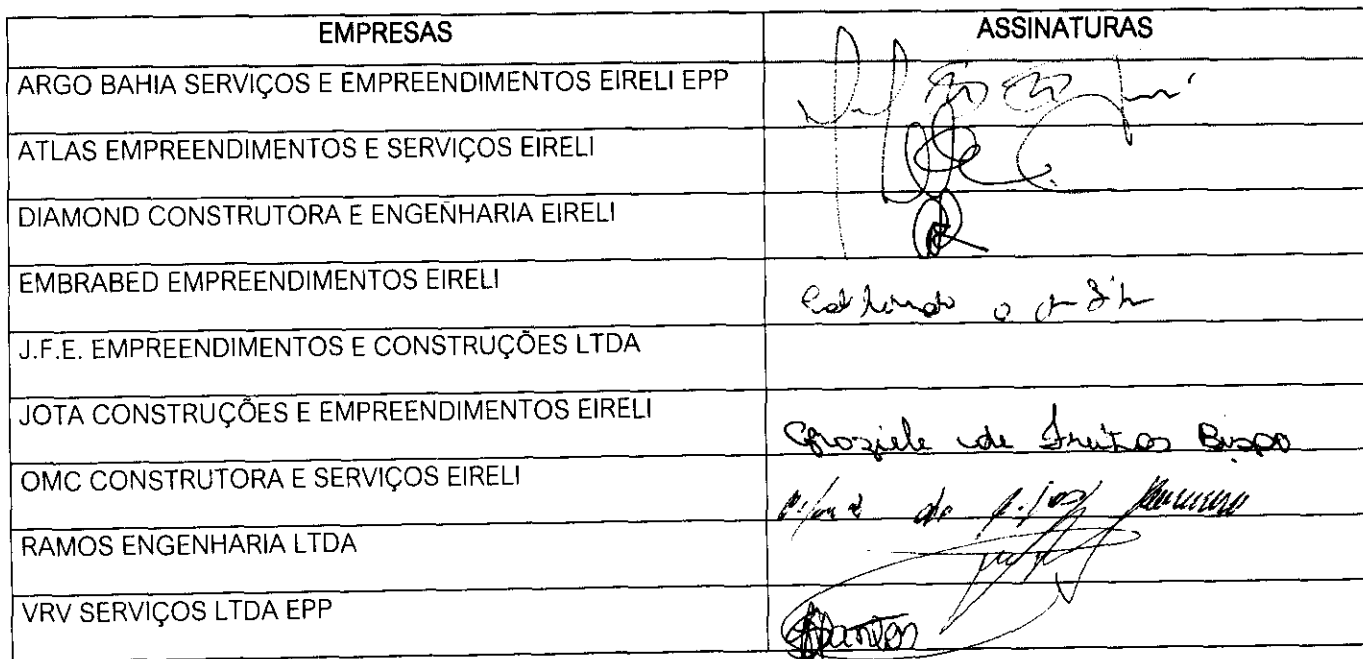 EMPRESAS ASSINATURAS
ARGO BAHIA SERVIÇOS E EMPREENDIMENTOS EIRELI EPP
ATLAS EMPREENDIMENTOS E SERVIÇOS EIRELI
DIAMOND CONSTRUTORA E ENGENHARIA EIRELI
EMBRABED EMPREENDIMENTOS EIRELI
J.F.E. EMPREENDIMENTOS E CONSTRUÇÕES LTDA
JOTA CONSTRUÇÕES E EMPREENDIMENTOS EIRELI
Groziele de Freitas Bispo
OMC CONSTRUTORA E SERVIÇOS EIRELI
RAMOS ENGENHARIA LTDA
VRV SERVIÇOS LTDA EPP
Santos